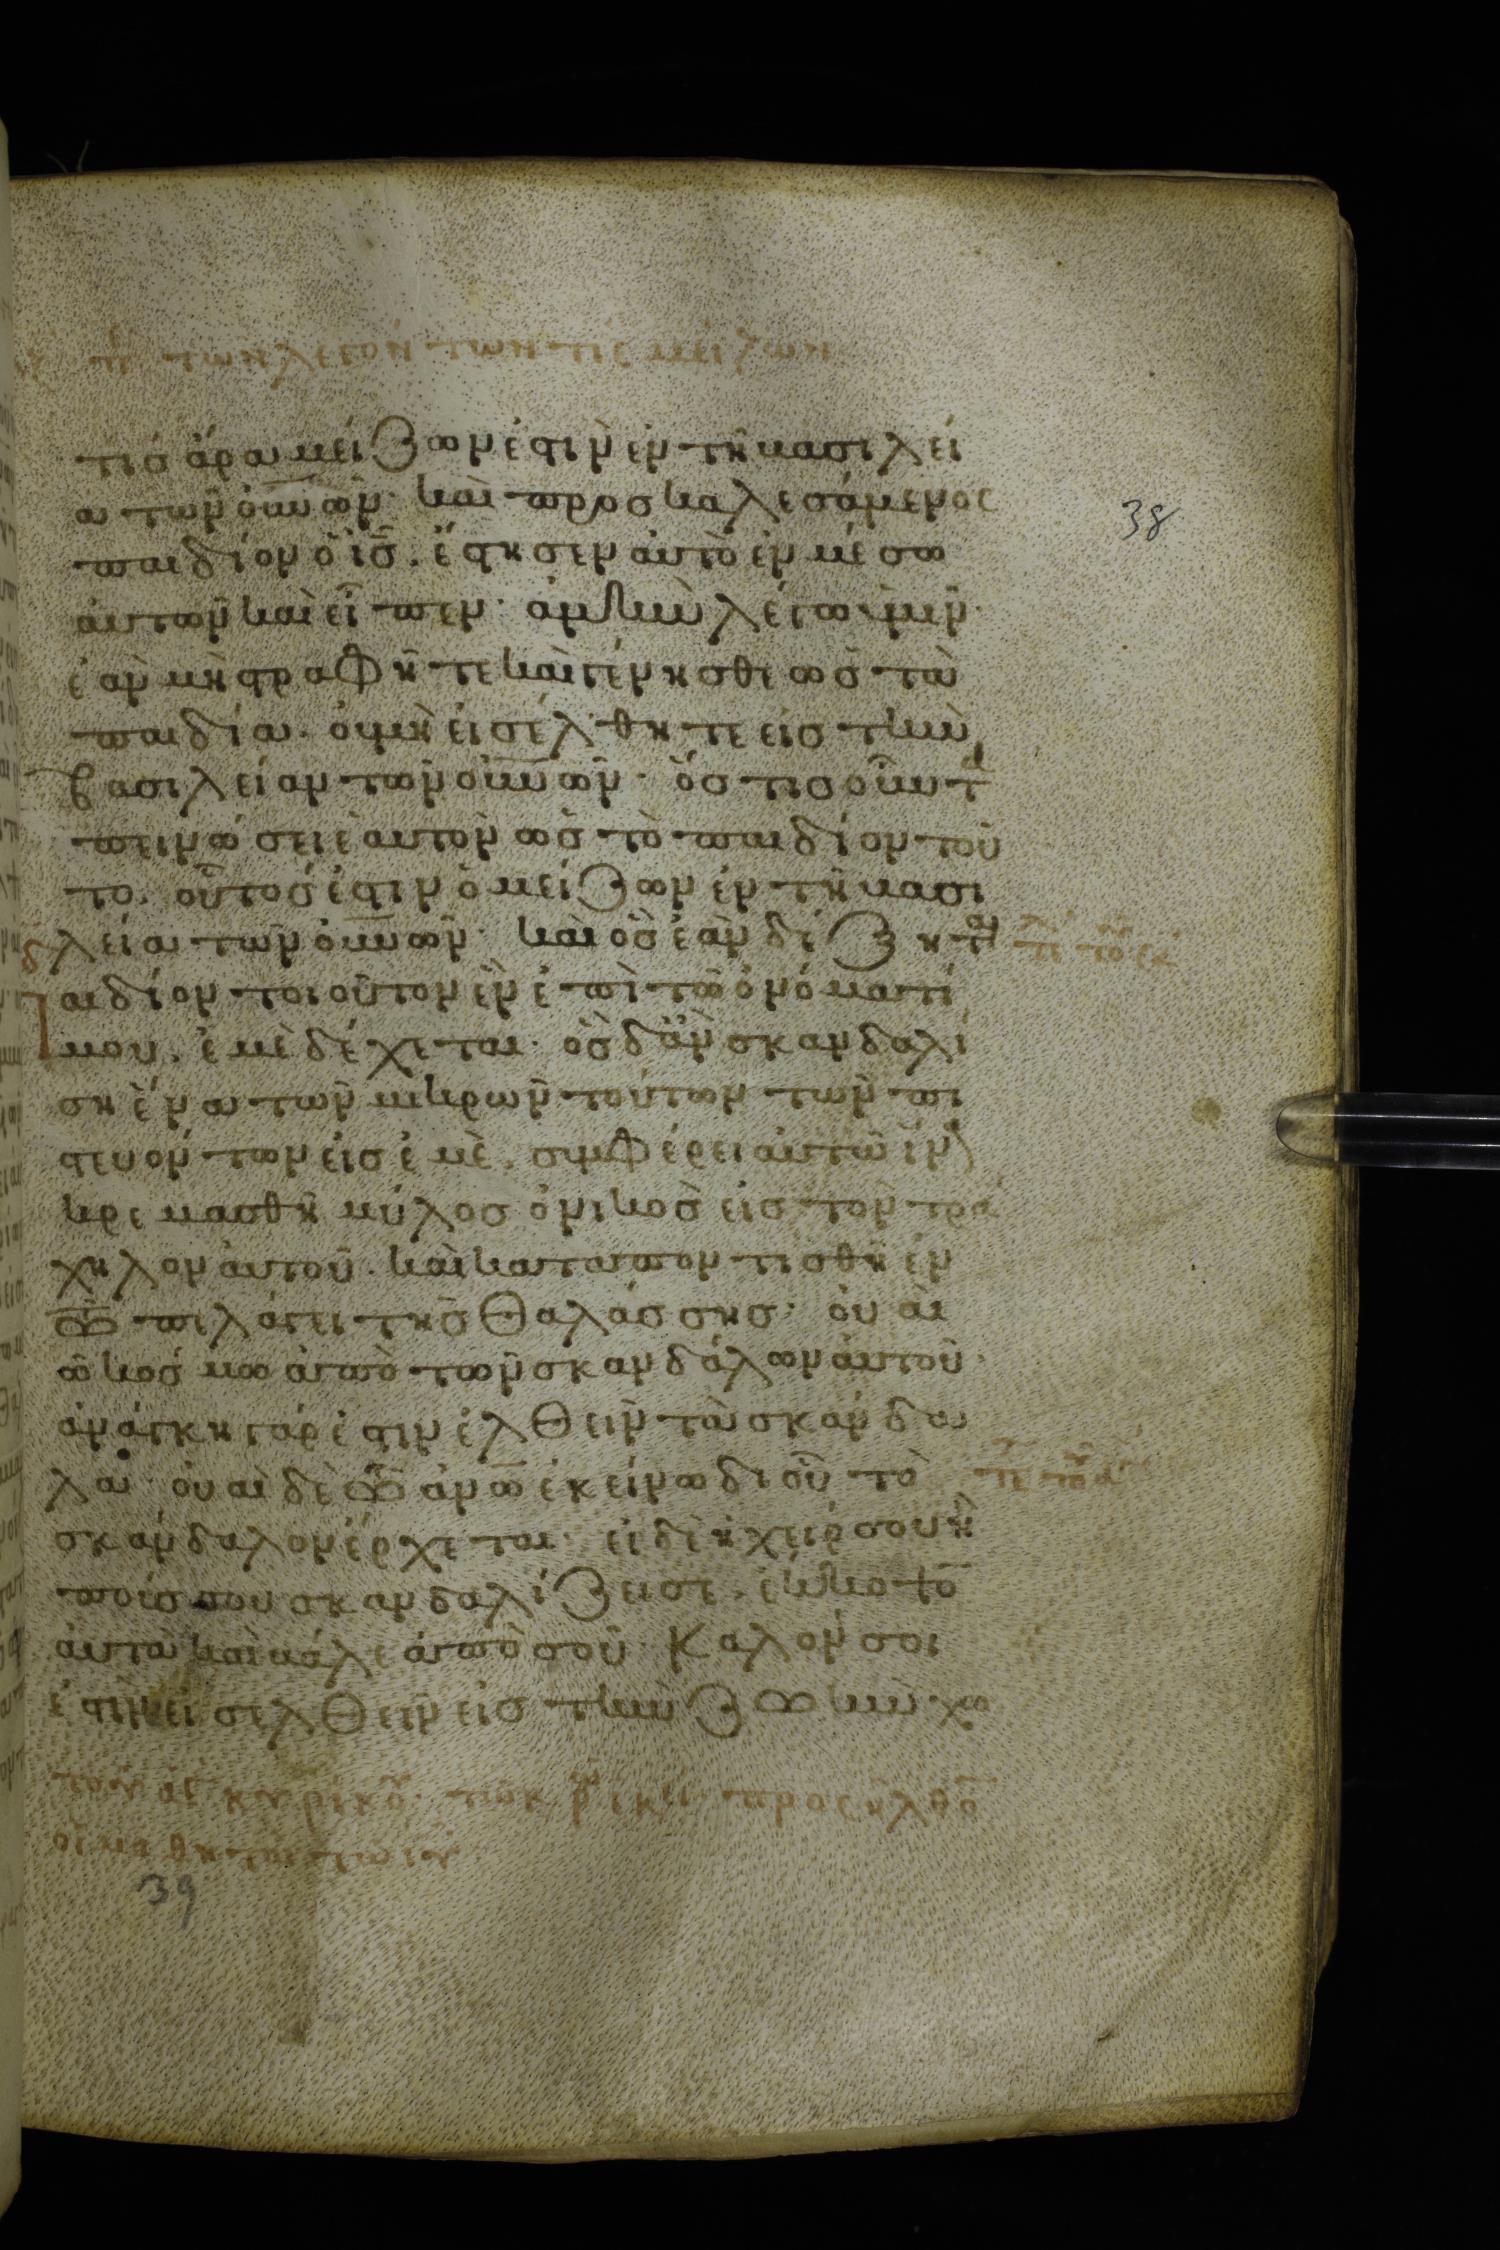 πε των λεγόντων τίς μείζων
τίσ ἄρα μείζων ἐστὶν ἐν τῆ βασιλεί
α τῶν οὐνῶν· καὶ προσκαλεσάμενος
παιδίον ὁ ἰς̄. ἔστησεν αὐτὸ ἐν μέσω
αὐτῶν καὶ εἶπεν· ἀμὴν λέγω ὑμῖν·
ἐὰν μὴ στραφῆτε καὶ γένησθε ὡσ τὰ
παιδία· οὐ μὴ εἰσέλθητε εἰσ τὴν
βασιλείαν τῶν οὐνῶν· ὅστισ οὖν τα
πεινώσει ἑαυτὸν ὡσ τὸ παιδίον τοῦ
το. οὗτόσ ἐστιν ὁ μείζων ἐν τῆ βασι
λεία τῶν οὐνῶν· καὶ ὃσ ἐὰν δέξητ παι
αιδίον τοιοῦτον ἓν ἐπὶ τῶ ὀνόματί
μου. ἐμὲ δέχεται· ὃσ δ' ἂν σκανδαλί
ση ἕνα τῶν μικρῶν τούτων τῶν πι
στευόντων εἰσ ἐμὲ. συμφέρει αὐτῶ ἵνα
κρεμασθῆ μύλοσ ὀνικὸσ εἰσ τὸν τρά
χηλον αὐτοῦ. καὶ καταποντισθῆ ἐν
τῶ πελάγει τῆσ θαλάσσησ· οὐαὶ
τῶ κόσμω ἀπὸ τῶν σκανδάλων αὐτοῦ·
ἀνάγκη γάρ ἐστιν ἐλθεῖν τὰ σκάνδα
λα· οὐαὶ δὲ τῶ ἀνω ἐκείνω δι' οὗ τὸ
σκάνδαλον ἔρχεται· εἰ δὲ ἡ χείρ σου ἢ
ποῦσ σου σκανδαλίζει σε. ἔκκοψο̄
αὐτὰ καὶ βάλε ἀπὸ σοῦ· καλόν σοι
ἐστὶν εἰσελθεῖν εἰσ τὴν ζωὴν χω
προσῆλθο̄
οἱ μαθηταὶ τῶ ιυ
38
39